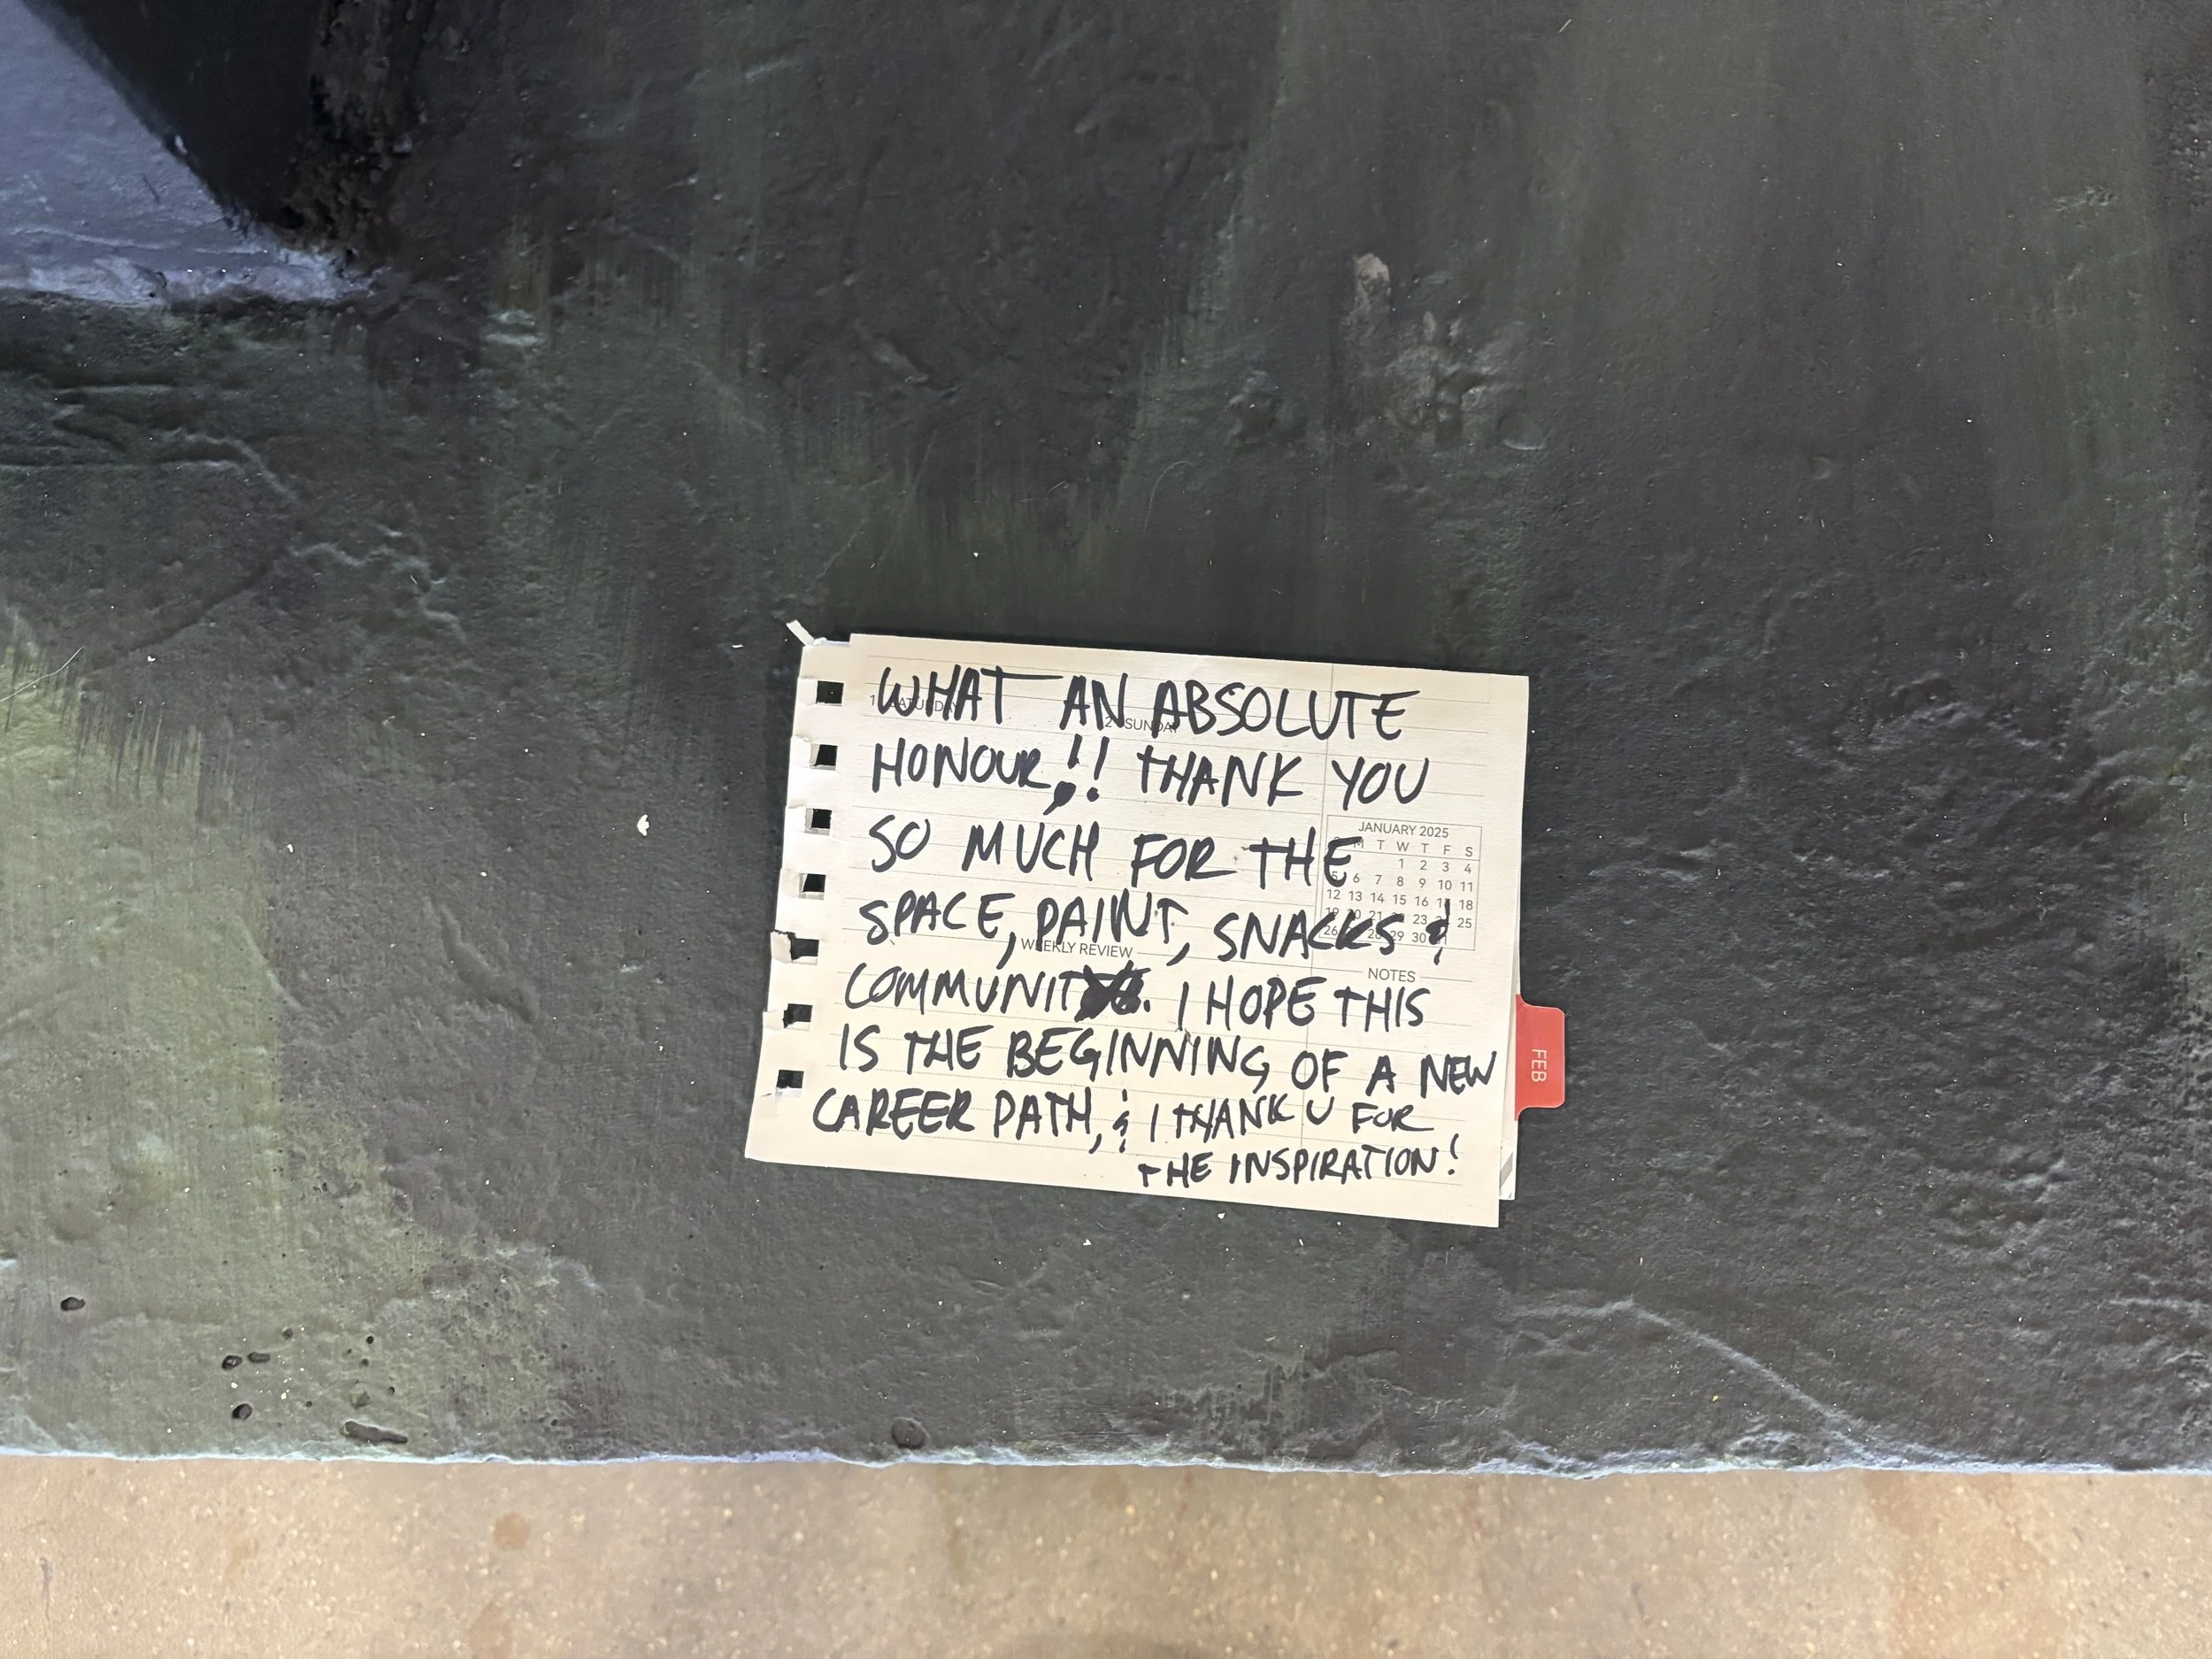 WHAT AN ABSOLUTE
HONOUR,!! THANK YOU
SO MUCH FOR THE
SPACE, PAINT, SNACKS &
COMMUNITY. I HOPE THIS
IS THE BEGINNING OF A NEW
CAREER PATH, & I THANK U FOR
THE INSPIRATION!
SUNDAY
JANUARY 2025
M T W T F S
1 2 3 4
5 6 7 8 9 10 11
12 13 14 15 16 17 18
19 20 21 23 25
26 28 29 30
WEEKLY REVIEW
NOTES
FEB